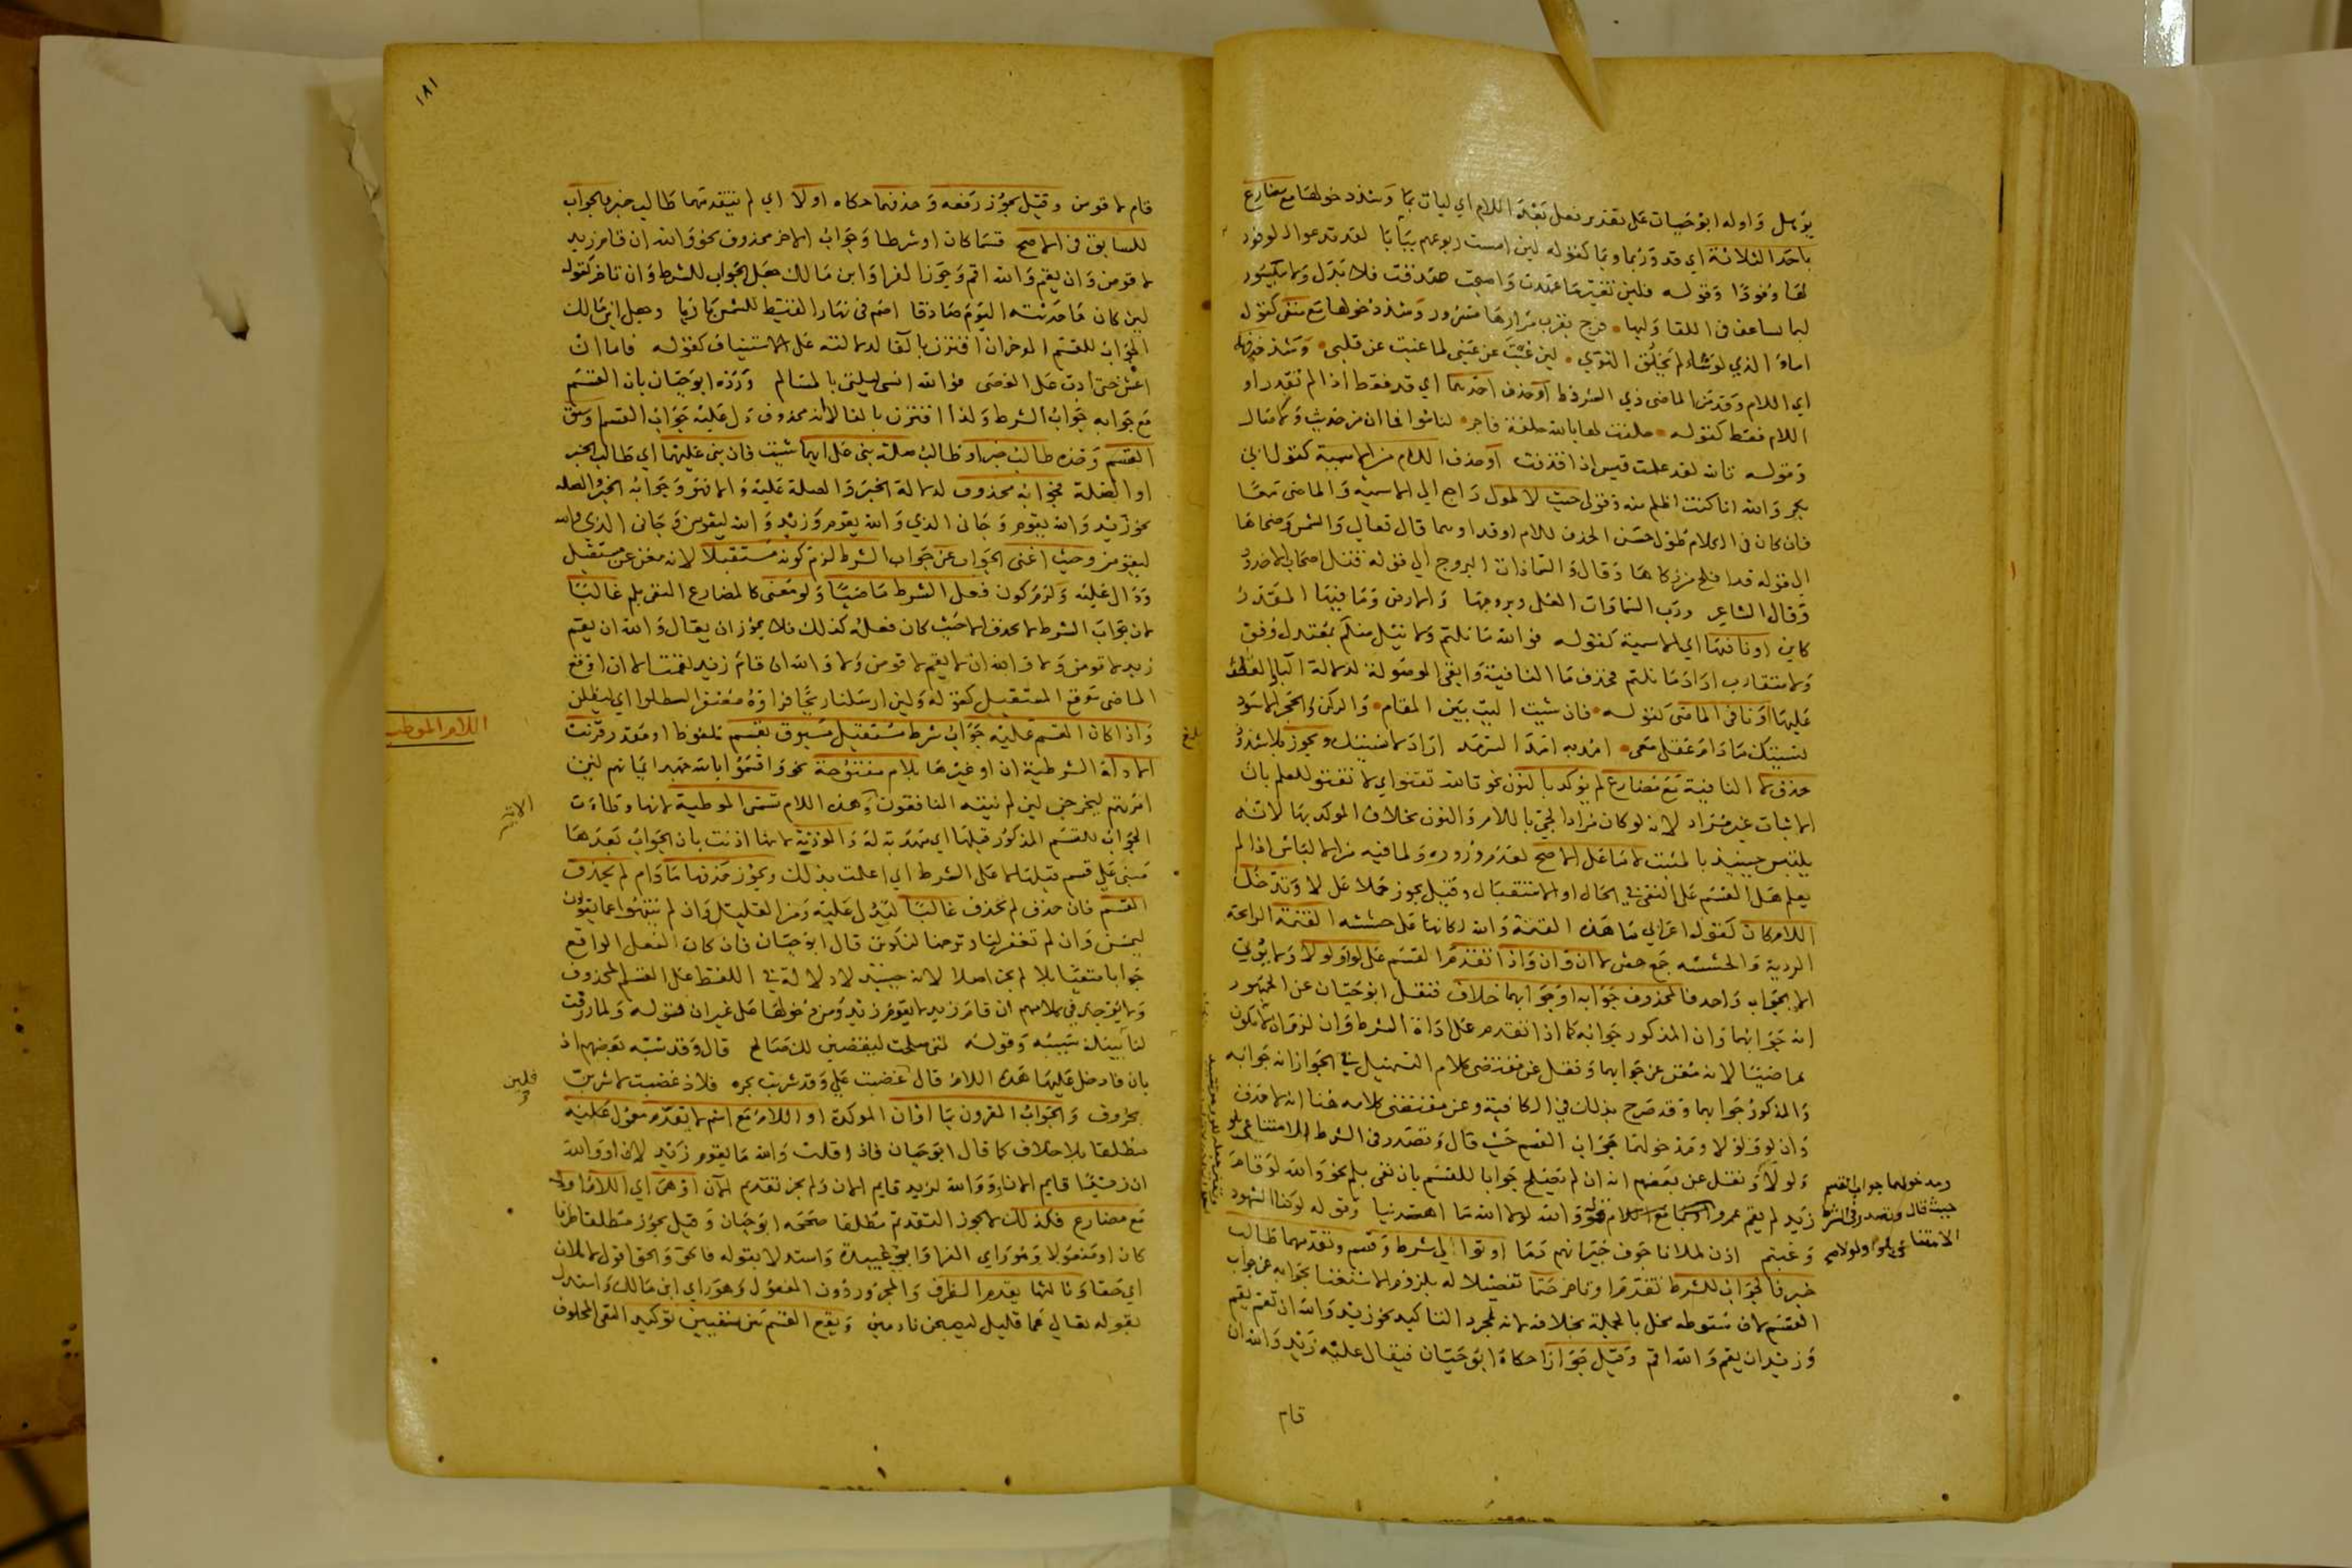 يؤهل واوله ابو حيان على تقدير فعل بعد اللام اي ليات بما وشذ دخولها مع مضارع
باحد الثلاثة اي قد وربما وبما كقوله لين امست ربوعهم يبابا لقد تدعو الوفود
لها وفودا وقوله فلين تغير ما عهدت واصبحت صدفت فلا بذل ولا ميسور
لبما يساعف في اللقا وليها فرح بقرب مزارها مسرور وشذ دخولها مع منفي كقوله
اما والذي لو شاء لم يخلق النوى لين غبت عن عيني لما غبت عن قلبي وشذ حذفها
اي اللام وقد من الماضي ذي الشروط او حذف احدهما اي قد فقط اذا لم تقدر او
اللام فقط كقوله حلفت لها بالله حلفة فاجر لناموا فما ان من حديث ولا صال
وقوله تالله لقد علمت قيس اذا قذفت او حذف اللام من الاسمية كقول ابي
بكر والله انا كنت اظلم منه وقولي حيث لا طول راجع الى الاسمية والماضي معا
فان كان في الكلام طول حسن الحذف للام او قد او هما قال تعالى والشمس وضحاها
الى قوله قد افلح من زكاها وقال والسما ذات البروج الى قوله قتل اصحاب الاخدود
وقال الشاعر ورب السماوات العلى وبروجها والارض وما فيها المقدر
كاين او نافيها اي الاسمية كقوله فوالله ما نلتم وما نيل منكم بمعتدل وفق
ولا متقارب اراد ما نلتم فحذف ما النافية وابقى الموصولة لدلالة الباء والعطف
عليها او نافي الماضي كقوله فان شيت اليت بين المقام والركن والحجر الاسود
نسيتك ما دام عقلي معي امد به امد السرمد اراد لا نسيتك ويجوز بلا شذوذ
حذف لا النافية مع مضارع لم يؤكد بالنون نحو تالله تفتؤ اي لا تفتؤ للعلم بان
الاثبات غير مراد لانه لو كان مرادا لجي باللام والنون بخلاف الموكد بها لانه
يلتبس حينيذ بالمثبت لا ما على الاصح لعدم وروده ولما فيه من الالباس اذا لم
يعلم هل القسم على النفي في الحال او الاستقبال وقيل يجوز حملا على لا وتدخل
اللام كان كقول اعرابي ما هذه القنمة والله لكانها على حششه القنمة الرائحة
الردية والحششه جمع حش لا ان وان واذا تقدم القسم على لو او لولا ولم يؤتى
الا بجواب واحد فالمحذوف جوابه او جوابهما خلاف فنقل ابو حيان عن الجمهور
انه جوابهما وان المذكور جوابه كما اذا تقدم على اداة الشرط وان لزم ان لا يكون
الا ماضيا لانه مغن عن جوابهما ونقل عن مقتضى كلام التسهيل في الجوازم انه جوابه
والمذكور جوابهما وقد صرح بذلك في الكافية وعن مقتضى كلامه هنا انه لا حذف
وان لو ولولا ومدخولهما جواب القسم حيث قال وتصدر في الشرط الامتناعي بلو
ولولا ونقل عن بعضهم انه ان لم يصلح جوابا للقسم بان نفي بلم نحو والله لو قام
زيد لم يقم عمرو او بما مع اللام نحو والله لولا الله ما اهتدينا وقوله لو كنا الشهود
وغبتم اذن لملانا جوف جيرانهم دما او توالى شرط وقسم وتقدمهما طالب
خبر فالجواب للشرط تقدم او تاخر حتما تفضيلا له بلزوم الاستغنا بجوابه عن جواب
القسم لان سقوطه مخل بالجملة بخلافه لانه لمجرد التاكيد نحو زيد والله ان تقم يقم
وزيد ان يقم والله اقم وقيل جوازا حكاه ابو حيان فيقال عليه زيد والله ان
قام
ومدخولهما جواب القسم
حيث قال وتصدر في الشرط
الامتناعي بلو ولولا صح
١٨١
قام لاقومن وقيل يجوز رفعه وحذفهما حكاه اولا اي لم يتقدمهما طالب خبر فالجواب
للسابق في الاصح قسما كان او شرطا وجواب الاخر محذوف نحو والله ان قام زيد
لاقومن وان يقم والله اقم وجوز الفرا وابن مالك جعل الجواب للشرط وان تاخر كقوله
لين كان ما حدثته اليوم صادقا اصم في نهار القيظ للشمس باديا وجعل ابن مالك
الجواب للقسم الموخر ان اقترن بالفا لدلالته على الاستيناف كقوله فاما ان
اعش حتى ادب على العصى فوالله انسى ليلتي بالمسالم ورده ابو حيان بان القسم
مع جوابه جواب الشرط ولذا اقترن بالفا لانه محذوف دل عليه جواب القسم وسبق
القسم وحده طالب خبر او طالب صلة بني على ايهما شيت فان بني عليهما اي طالب الخبر
او الصلة فجوابه محذوف لدلالة الخبر والصلة عليه والا فهو وجوابه الخبر والصلة
نحو زيد والله يقوم وجاني الذي والله يقوم وزيد والله ليقومن وجاني الذي والله
ليقومن وحيث اغنى الجواب عن جواب الشرط لزم كونه مستقبلا لانه مغن عن مستقبل
ودال عليه ولزم كون فعل الشرط ماضيا ولو معنى كالمضارع المنفي بلم غالبا
لان جواب الشرط لا يحذف الا حيث كان فعله كذلك فلا يجوز ان يقال والله ان يقم
زيد لاقومن ولا والله ان لا يقم لاقومن ولا والله ان قام زيد لقمت الا ان اوقع
الماضي موقع المستقبل كقوله ولين ارسلنا ريحا فراوه مصفرا لظلوا اي ليظلن
واذا كان القسم عليه جواب شرط مستقبل مسبوق بقسم ملفوظ او مقدر قرنت
الاداة الشرطية ان او غيرها بلام مفتوحة نحو واقسموا بالله جهد ايمانهم لين
امرتهم ليخرجن لين لم ينته المنافقون وهذه اللام تسمى الموطية لانها وطات
الجواب للقسم المذكور قبلها اي مهدته له والموذنة لانها اذنت بان الجواب بعدها
مبني على قسم قبلها لا على الشرط اي اعلمت بذلك ويجوز حذفها ما دام لم يحذف
القسم فان حذف لم تحذف غالبا ليدل عليه ومن القليل وان لم ينتهوا عما يقولون
ليمسن وان لم تغفر لنا وترحمنا لنكونن قال ابو حيان فان كان الفعل الواقع
جوابا منفيا بلا لم يجز اصلا لانه حينيذ لا دلالة في اللفظ على القسم المحذوف
ولا يوجد في كلامهم ان قام زيد لا يقوم زيد ومن دخولها على غير ان قوله ولما رزقت
لياتينك سيبه وقوله لمتى صلحت ليقضين لك صالح قال وقد شبه بعضهم اذ
بان فادخل عليها هذه اللام قال غضبت علي وقد شربت بجزة فلاذ غضبت لاشربن
بخروف والجواب المقرون بما او ان الموكدة او اللام مع اسم لا يتقدم معمول عليه
مطلقا بلا خلاف كما قال ابو حيان فاذا قلت والله ما يقوم زيد الان او والله
ان زيدا قايم الان او والله لزيد قايم الان ولم يجز تقديم الان او هي اي اللام اولا
مع مضارع فكذلك لا يجوز التقديم مطلقا صححه ابو حيان وقيل يجوز مطلقا ظرفا
كان او مفعولا وهو راي الفرا وابي عبيدة واستدلا بقوله فالحق والحق اقول لاملان
اي حقا وثالثها يقدم الظرف والمجرور دون المفعول وهو راي ابن مالك واستدل
بقوله تعالى عما قليل ليصبحن نادمين ويقع القسم بين منفيين توكيد النفي المحلوف
اللام الموطية
فلين